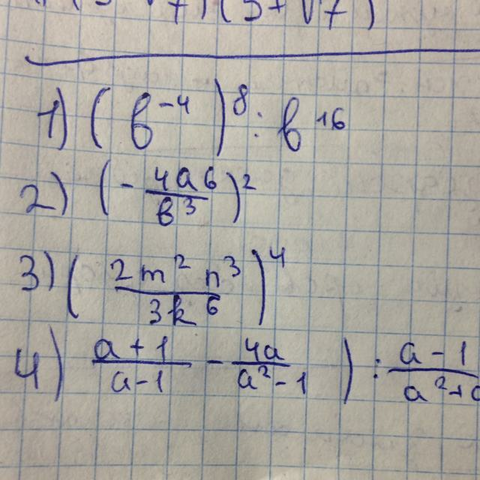 1) (b⁻⁴)⁸ : b¹⁶
2) (- 4a⁶/b³)²
3) (2m²n³/3k⁶)⁴
4) a+1/a-1 - 4a/a²-1) : a-1/a²+